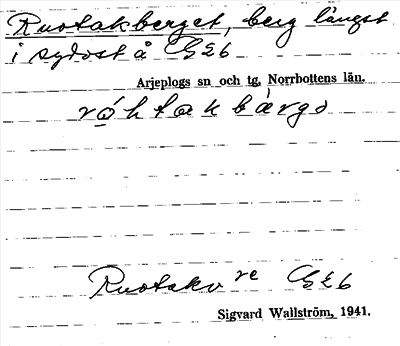 Ruotakberget, berg längst
i sydost å G26
Arjeplogs sn och tg, Norrbottens län.
Ruotakv re G26
Sigvard Wallström, 1941.